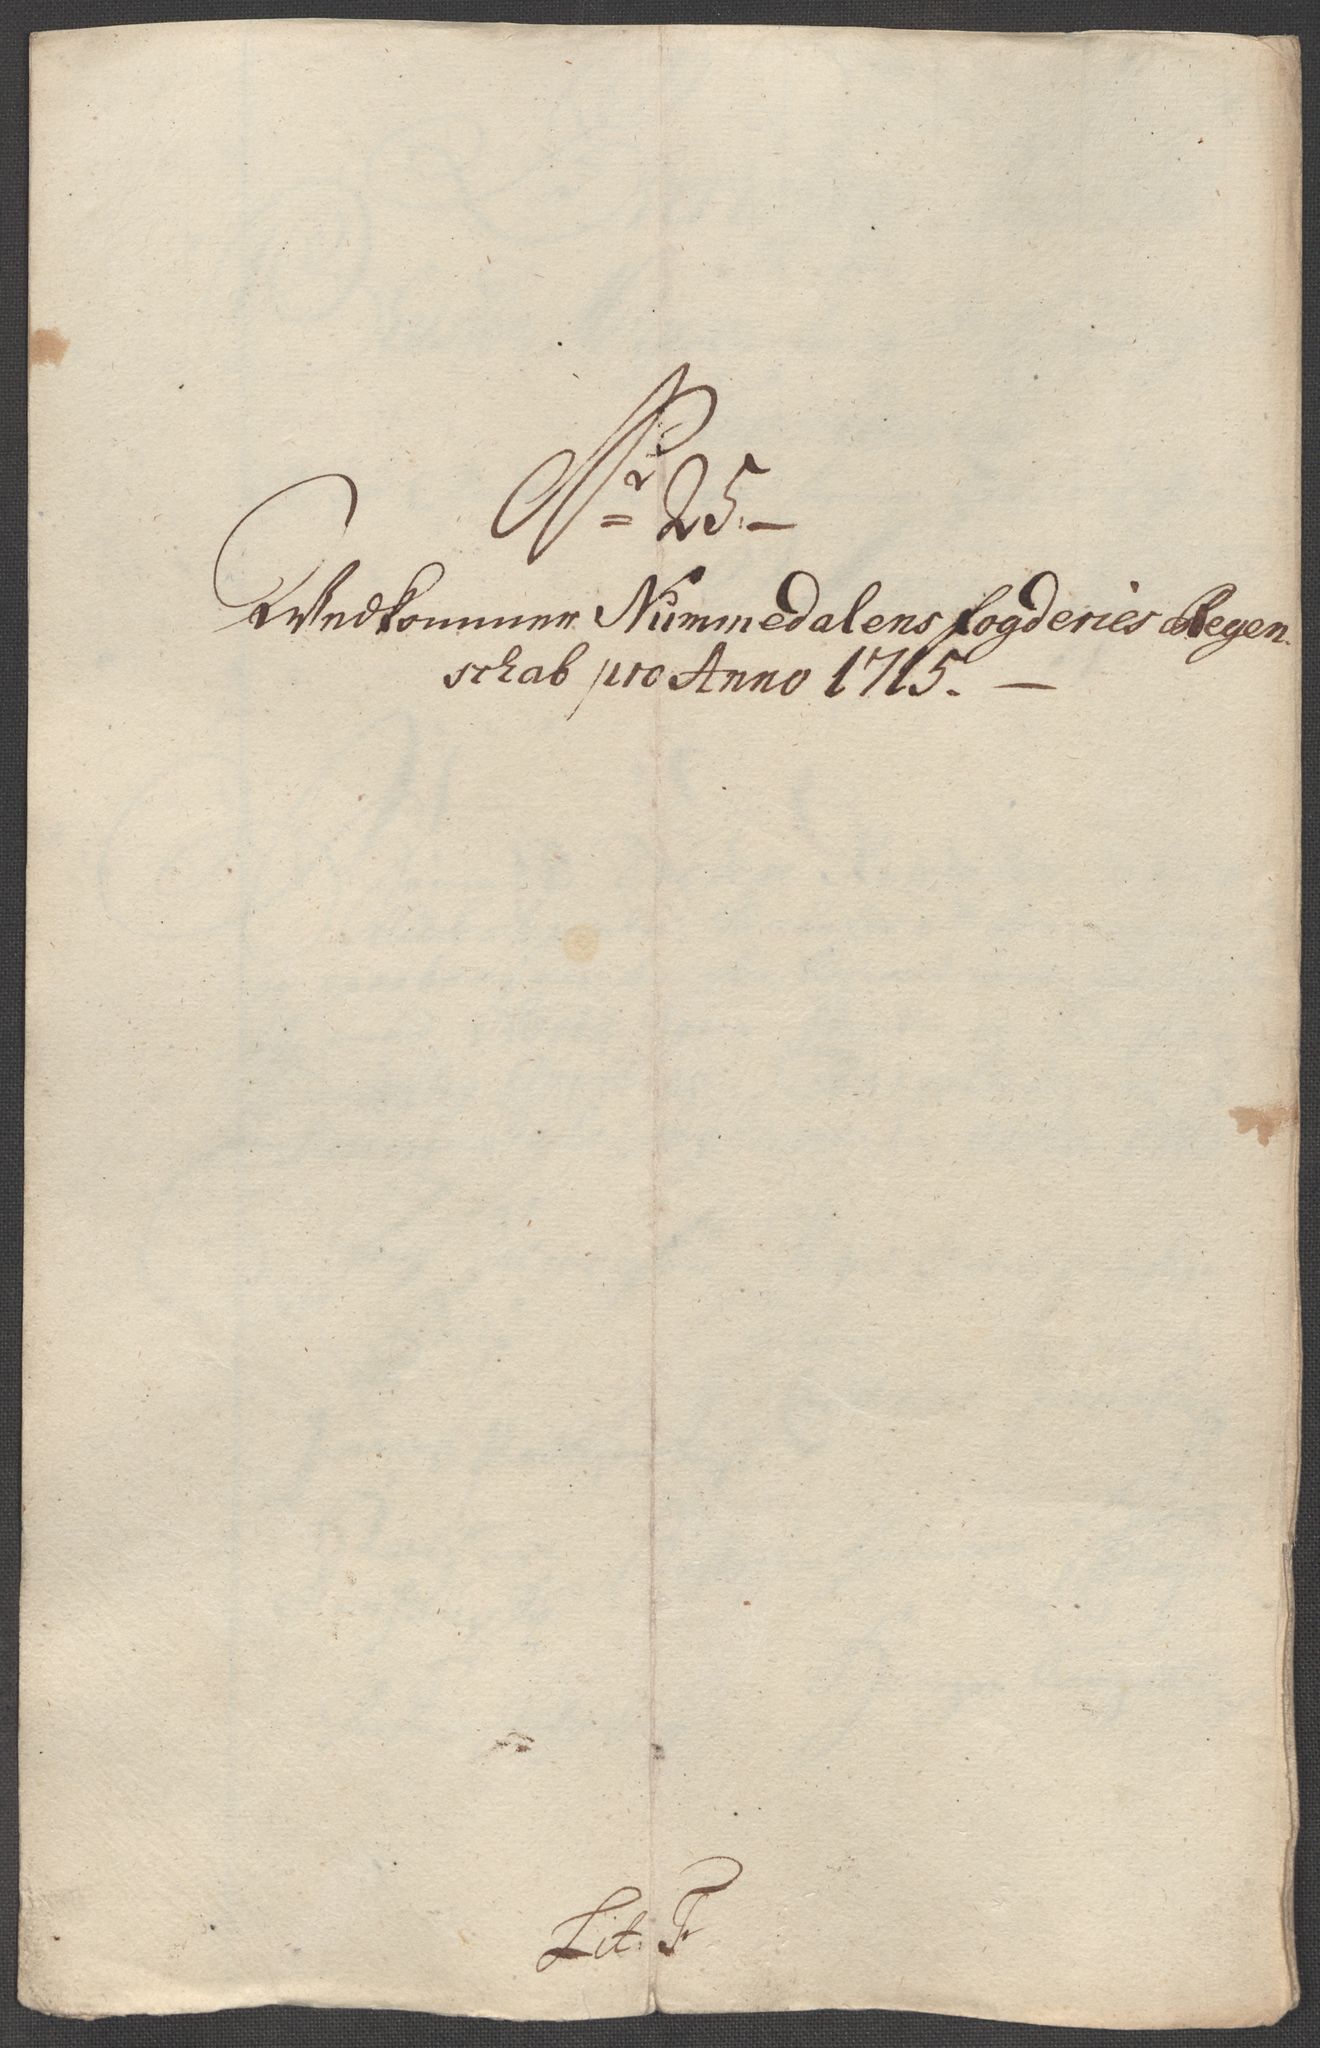 No 25.—
Vedkommer Nummedalens fogderies Regen-
schab pro Anno 1715. —
Lit. F